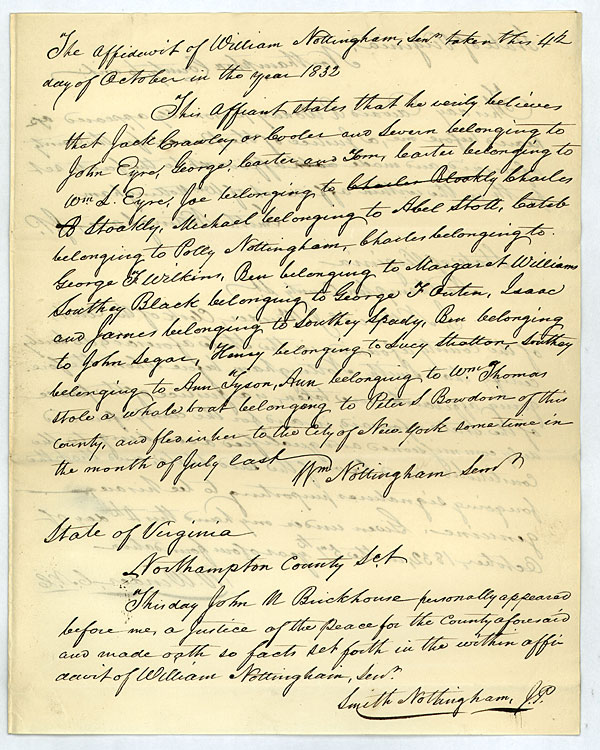 The Affidavit of William Nottingham, Senr taken this 4th
day of October in the year 1832
This Affiant states that he verily believes
that Jack Crawley or Cooler and Severn belonging to
John Eyre, George, Carter and Tom, Carter belonging to
Wm L. Eyre, Joe belonging to Charles Stoakly Charles
Stoakly, Michael belonging to Abel Stott, Caleb
belonging to Polly Nottingham, Charles belonging to
George F Wilkins, Ben belonging to Margaret Williams
Southey Black belonging to George F Outen, Isaac
and James belonging to Southey Spady, Ben belonging
to John Segar, Henry belonging to Lucy Stratton, Southey
belonging to Ann Tyson, Ann belonging to Wm Thomas
stole a whale boat belongeng to Peter S Bowdoin of this
County, and fled in her to the City of New York some time in
the month of July last
Wm Nottingham Senr
State of Virginia
Northampton County Sct
This day John N Brickhouse personally appeared
before me, a Justice of the Peace for the County aforesaid
and made oath so facts set forth in the within affi
davit of William Nottingham, Senr.
Smith Nottingham, J.P.